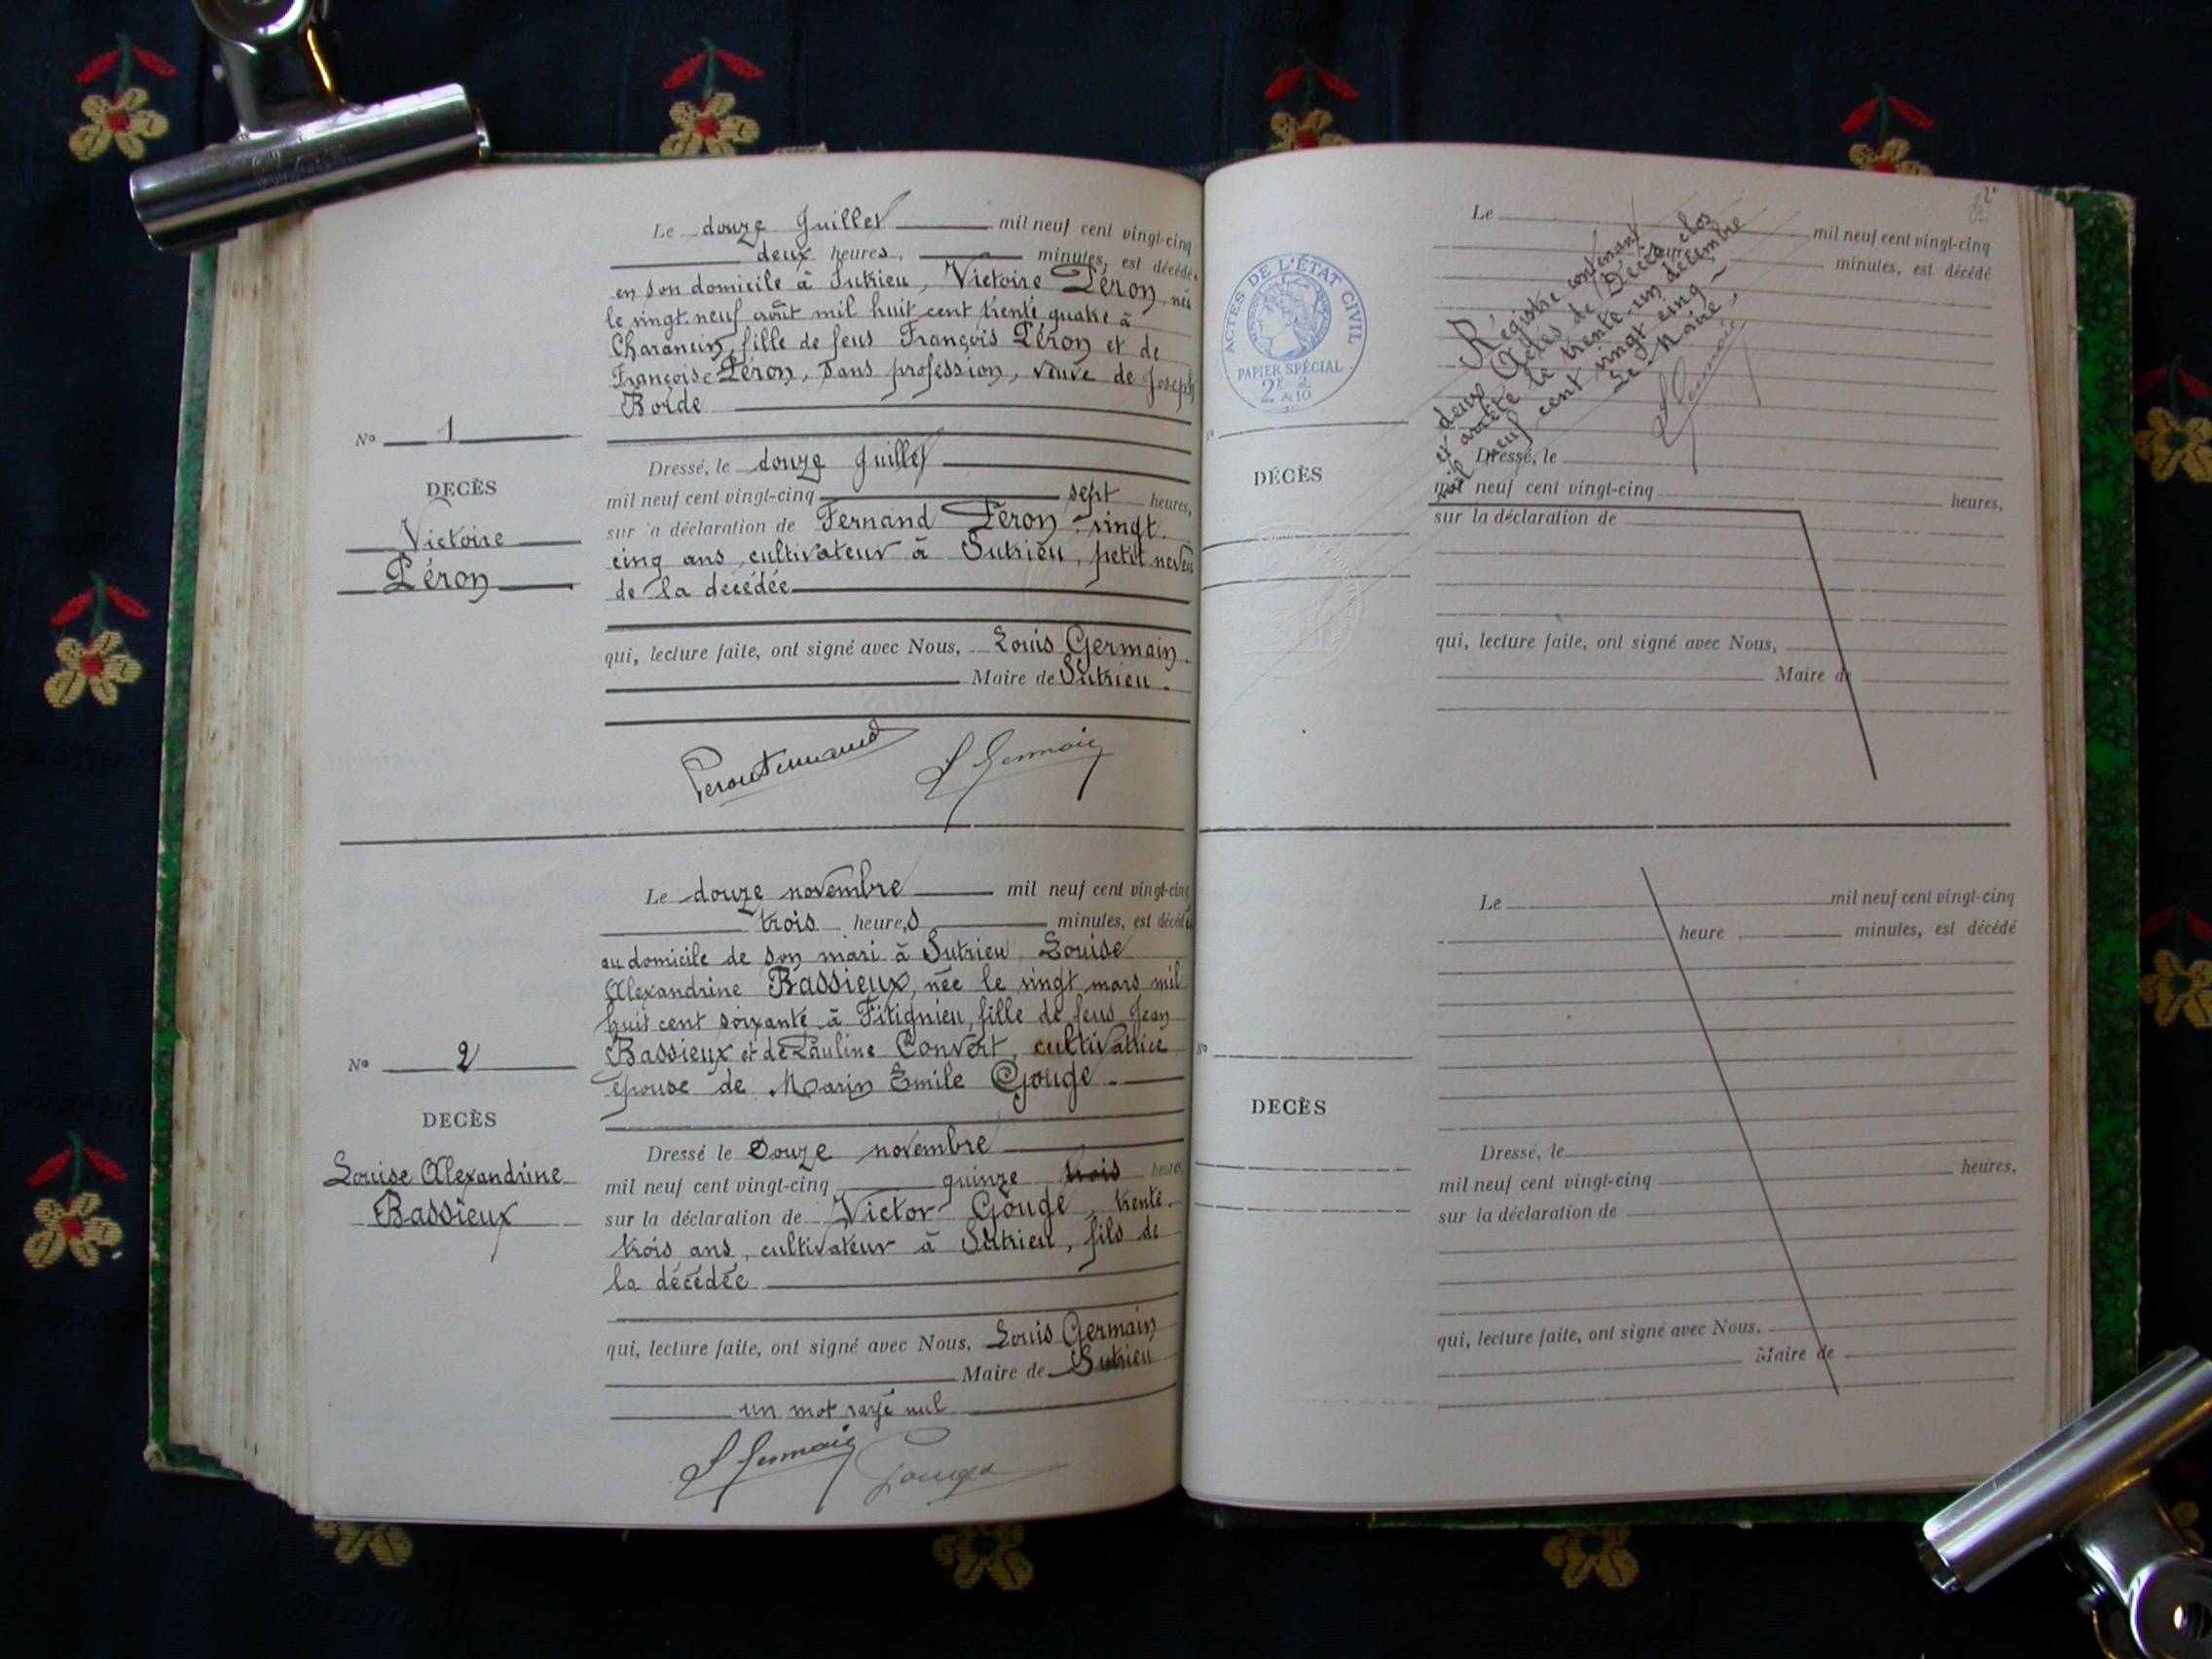 Le douze Juillet mil neuf cent vingt-cinq
deux heures, minutes, est décédée
en son domicile à Sutrieu, Victoire Péron, née
le vingt-neuf août mil huit cent trente quatre à
Charancin, fille de feus François Péron et de
Françoise Péron, sans profession, veuve de Joseph
Borde
No 1
DECÈS
Victoire
Péron
Dressé, le douze Juillet
mil neuf cent vingt-cinq sept heures,
sur a déclaration de Fernand Péron vingt
cinq ans, cultivateur à Sutrieu, petit neveu
de la décédée
qui, lecture faite, ont signé avec Nous, Louis Germain
Maire de Sutrieu.
Peron Fernand L Germain
Le douze novembre mil neuf cent vingt-cinq
trois heures minutes, est décédée
au domicile de son mari à Sutrieu, Louise
Alexandrine Bassieux, née le vingt mars mil
huit cent soixante à Fitignieu, fille de feus Jean
Bassieux et de Pauline Convert, cultivatrice
épouse de Marin Emile Gouge.
No 2
DECÈS
Louise Alexandrine
Bassieux
Dressé le Douze novembre
mil neuf cent vingt-cinq quinze trois heures,
sur la déclaration de Victor Gouge, trente-
trois ans, cultivateur à Sutrieu, fils de
la décédée
qui, lecture faite, ont signé avec Nous, Louis Germain
Maire de Sutrieu
un mot rayé nul
L Germain Gouge
ACTES DE L'ÉTAT CIVIL
PAPIER SPÉCIAL
2F 2/10
&
Le mil neuf cent vingt-cinq
minutes, est décédé
Régistre contenant
deux Actes de Décès clos
et arrêté le trente-un décembre
mil neuf cent vingt cinq
Le Maire,
L Germain
DÉCÈS
Dressé, le
mil neuf cent vingt-cinq heures,
sur la déclaration de
qui, lecture faite, ont signé avec Nous,
Maire de
Le mil neuf cent vingt-cinq
heure , minutes, est décédé
No
DECÈS
Dressé, le
mil neuf cent vingt-cinq heures,
sur la déclaration de
qui, lecture faite, ont signé avec Nous,
Maire de